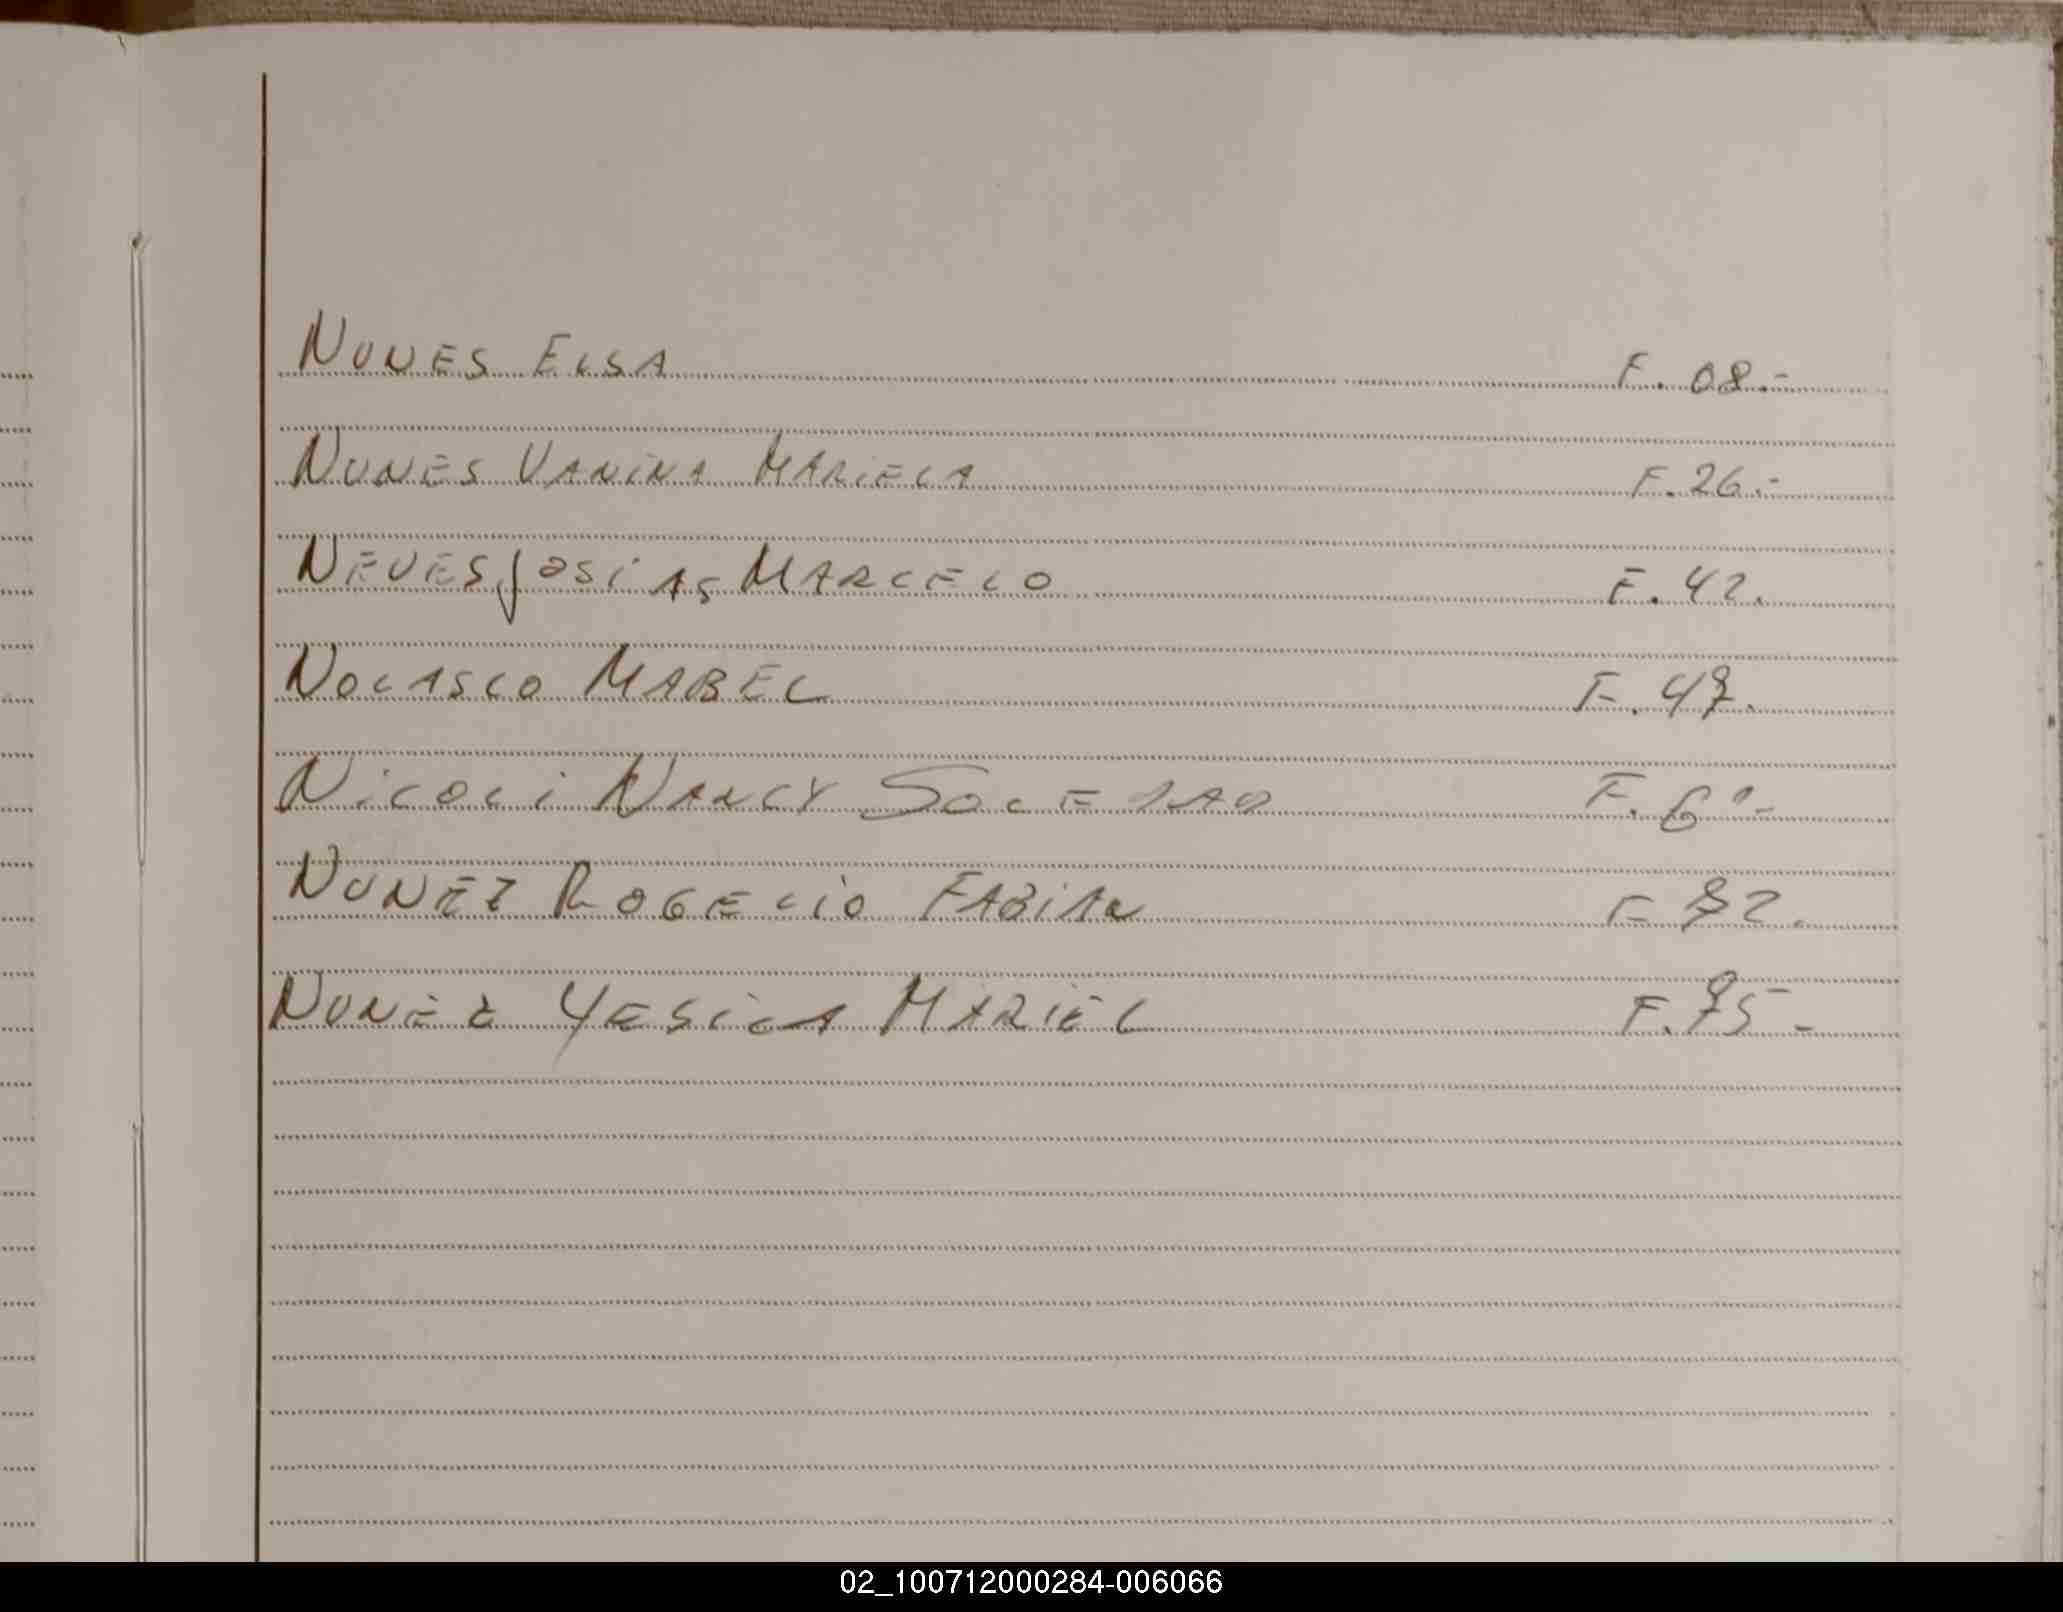 NUNES ELSA F. 08.-
NUNES VANINA MARIELA F. 26.-
NEVES JOSIAS MARCELO F. 42.
NOLASCO MABEL F. 47.
NICOLI NANCY SOLEDAD F.
NUNEZ ROGELIO FABIAN F 72.
NUNEZ YESICA MARIEL F. 75-
02_100712000284-006066